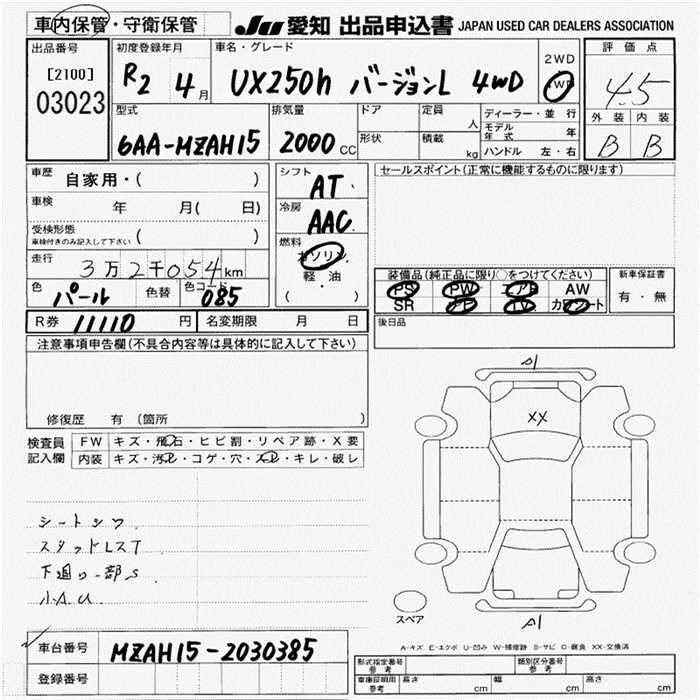 車内保管・守衛保管 JU 愛知 出品申込書 JAPAN USED CAR DEALERS ASSOCIATION
出品番号 初度登録年月 車名・グレード 評価点
[2100] R2 4月 UX250h バージョンL 4WD 2WD 4WD 4.5
03023
型式 排気量 ドア 定員 人 ディーラー・並行 外装 内装
6AA-MZAH15 2000cc 形状 積載 kg モデル年式 年 B B
ハンドル 左・右
車歴 自家用・( ) シフト AT セールスポイント(正常に機能するものに限ります)
車検 年 月( 日) 冷房 AAC
受検形態 ( )
車検付きのみ記入して下さい
燃料 ガソリン
走行 3万2千054km 軽油
( )
装備品(純正品に限り○をつけてください) 新車保証書
PS PW エアB AW 有・無
SR ナビ TV カワシート
色 パール 色替 色コード 085
R券 11110円 名変期限 月 日 後日品
注意事項申告欄(不具合内容等は具体的に記入して下さい)
修復歴 有(箇所 )
検査員記入欄 FW キズ・飛石・ヒビ割・リペア跡・X要
内装 キズ・汚れ・コゲ・穴・スレ・キレ・破レ
A1
XX
シートシワ
スタッドレスT
下廻り一部S
小A.U.
スペア
A1
A-キズ E-エクボ U-凹み W-補修跡 S-サビ C-腐食 XX-交換済
車台番号 MZAH15-2030385
登録番号
形式指定番号 参考 類別区分番号 参考
車庫証明用 参考 長さ cm 幅 cm 高さ cm